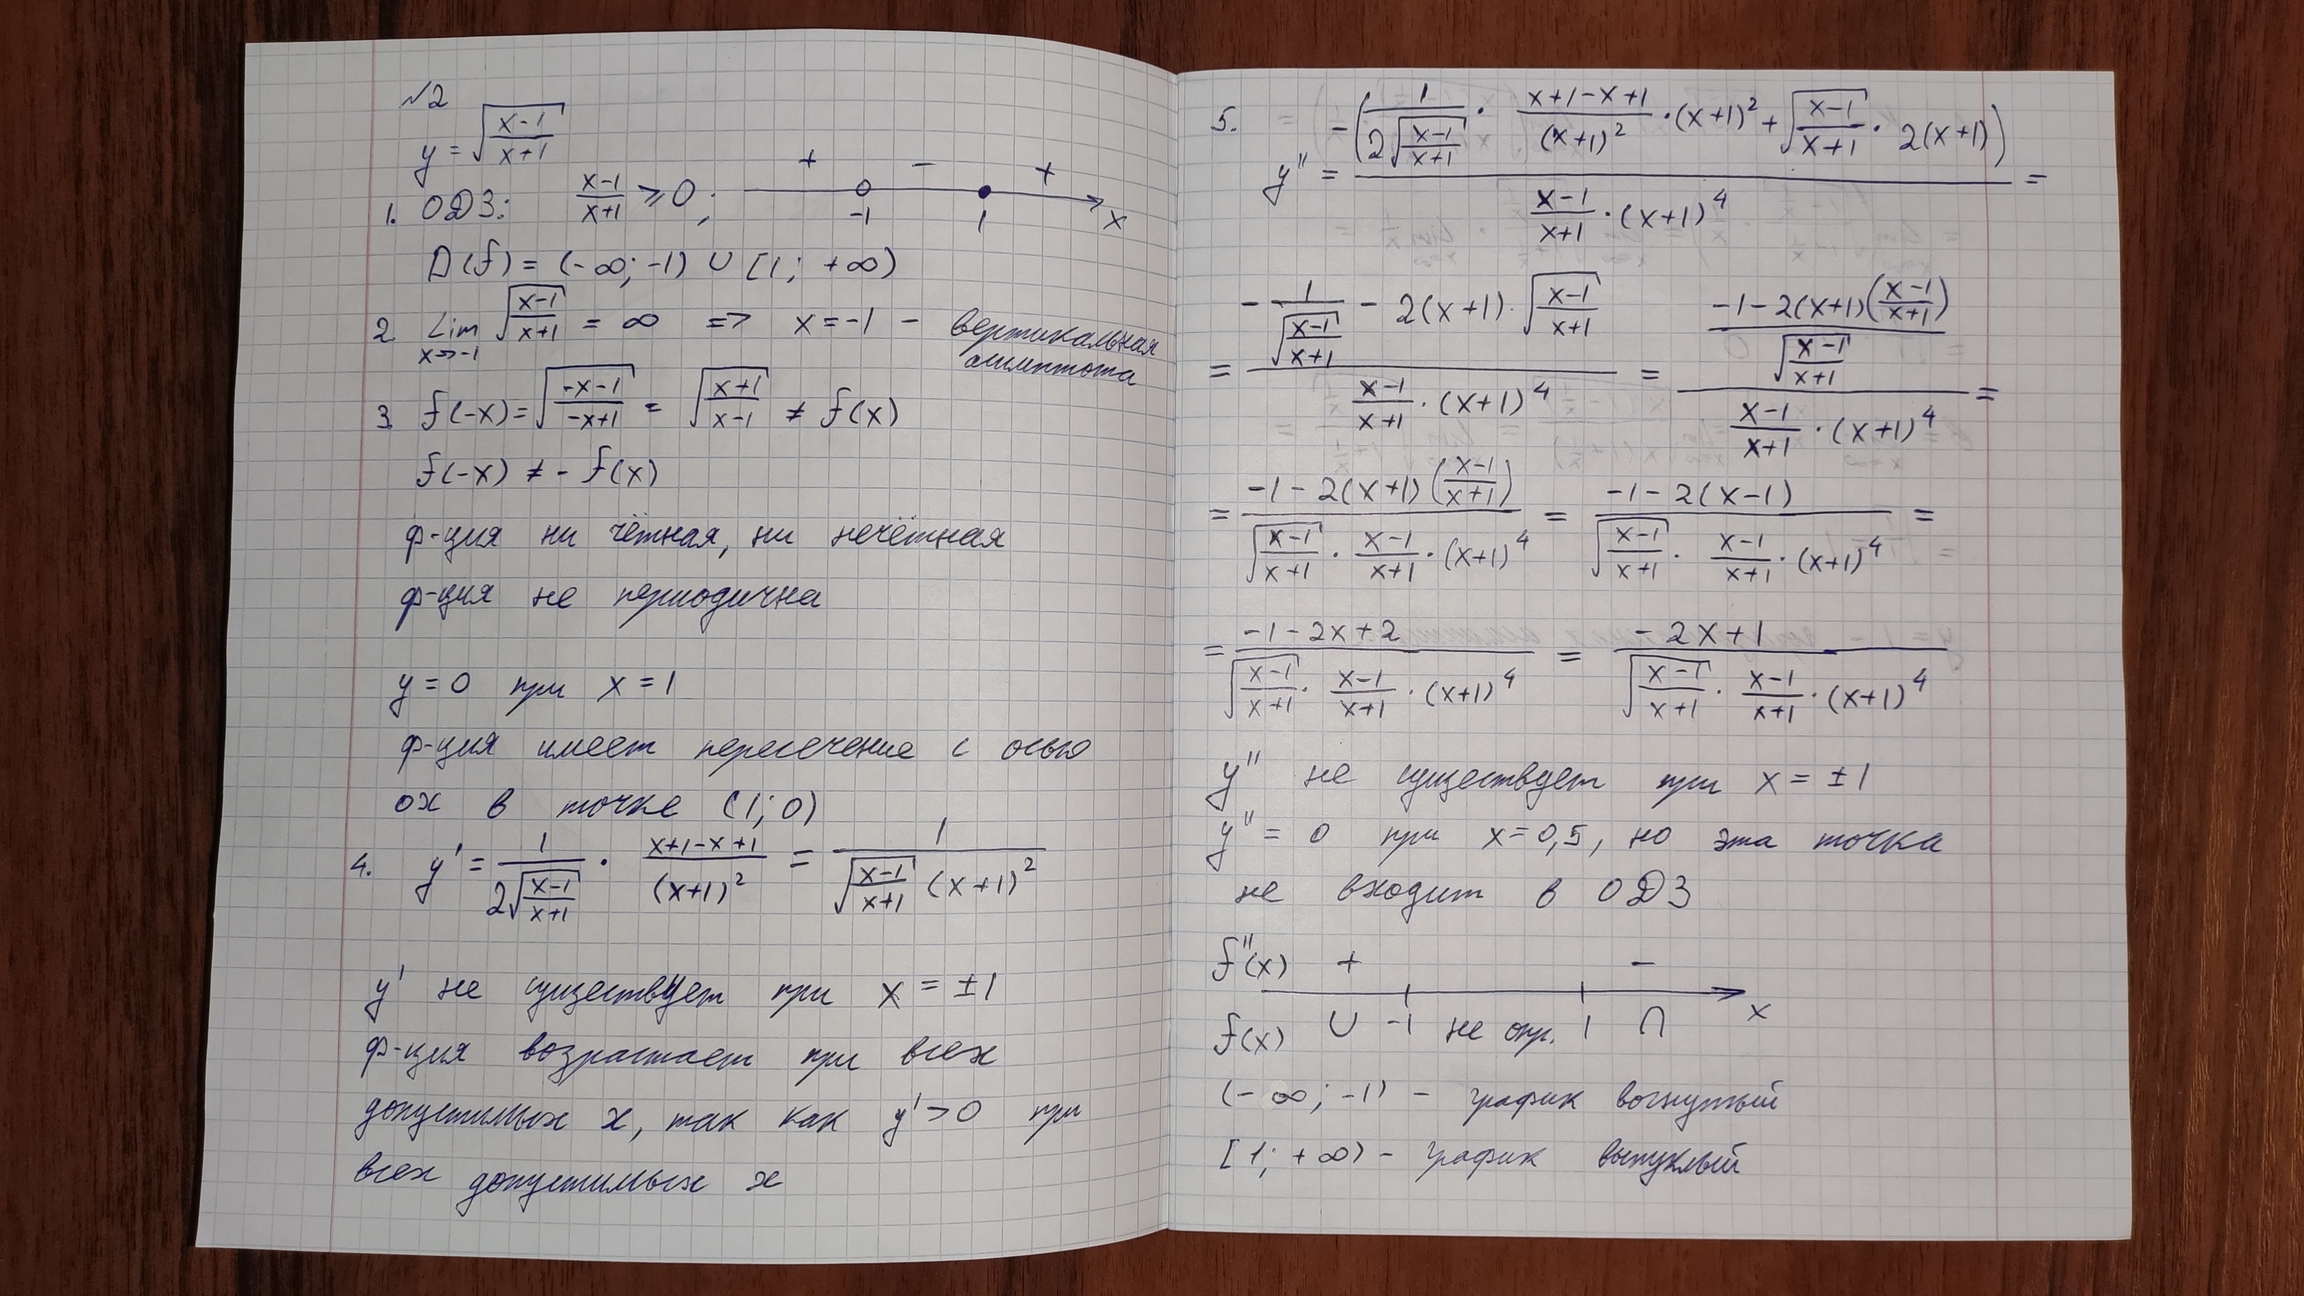 №2
y = √((x-1)/(x+1))
1. ОДЗ: (x-1)/(x+1) ≥ 0; + - + -1 1 x
D(f) = (-∞; -1) ∪ [1; +∞)
2. Lim x→-1 √((x-1)/(x+1)) = ∞ => x = -1 - вертикальная
асимптота
3. f(-x) = √((-x-1)/(-x+1)) = √((x+1)/(x-1)) ≠ f(x)
f(-x) ≠ - f(x)
ф-ция ни чётная, ни нечётная
ф-ция не периодична
y = 0 при x = 1
ф-ция имеет пересечение с осью
ox в точке (1; 0)
4. y' = 1/(2√((x-1)/(x+1))) · (x+1-x+1)/(x+1)² = 1/(√((x-1)/(x+1)) (x+1)²)
y' не существует при x = ±1
Ф-ция возрастает при всех
допустимых x, так как y' > 0 при
всех допустимых x
5. y'' = -(1/(2√((x-1)/(x+1))) · (x+1-x+1)/(x+1)² · (x+1)² + √((x-1)/(x+1)) · 2(x+1)) / ((x-1)/(x+1) · (x+1)⁴) =
= (-1/√((x-1)/(x+1)) - 2(x+1) · √((x-1)/(x+1))) / ((x-1)/(x+1) · (x+1)⁴) = ((-1-2(x+1)((x-1)/(x+1))) / √((x-1)/(x+1))) / ((x-1)/(x+1) · (x+1)⁴) =
= (-1-2(x+1)((x-1)/(x+1))) / (√((x-1)/(x+1)) · (x-1)/(x+1) · (x+1)⁴) = (-1-2(x-1)) / (√((x-1)/(x+1)) · (x-1)/(x+1) · (x+1)⁴) =
= (-1-2x+2) / (√((x-1)/(x+1)) · (x-1)/(x+1) · (x+1)⁴) = (-2x+1) / (√((x-1)/(x+1)) · (x-1)/(x+1) · (x+1)⁴)
y'' не существует при x = ±1
y'' = 0 при x = 0,5, но эта точка
не входит в ОДЗ
f''(x) + -
f(x) ∪ -1 не опр. 1 ∩ x
(-∞; -1) - график вогнутый
[1; +∞) - график выпуклый